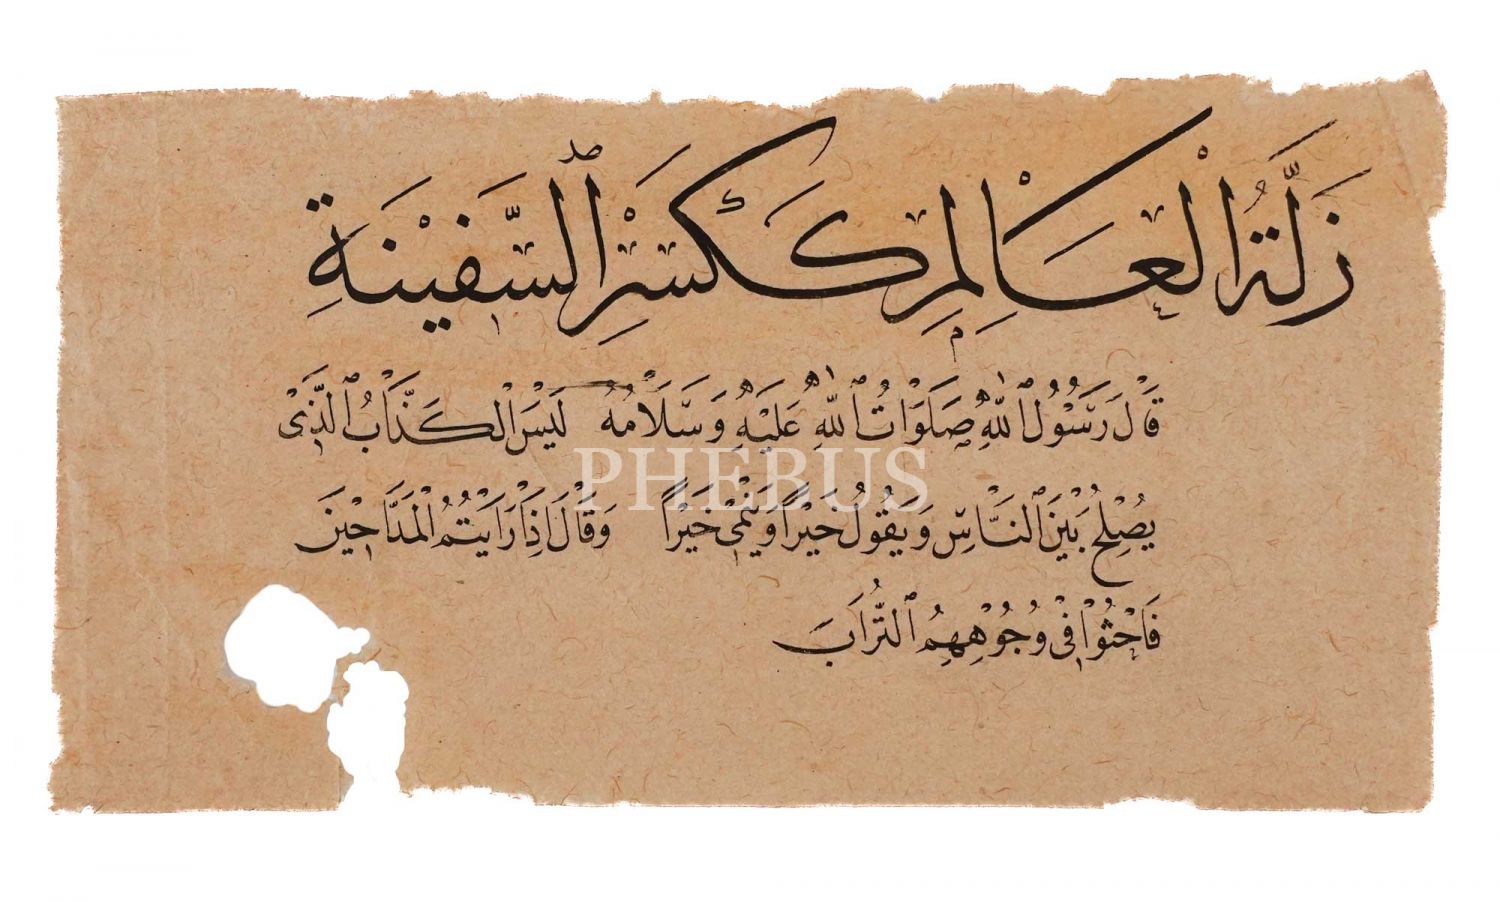 زَلَّةُ الْعَالِمِ كَكَسْرِ السَّفِيْنَةِ
قَالَ رَسُوْلُ اللهِ صَلَوَاتُ اللهِ عَلَيْهِ وَسَلَامُهُ لَيْسَ الْكَذَّابُ الَّذِىْ
PHEBUS
يُصْلِحُ بَيْنَ النَّاسِ وَيَقُوْلُ خَيْرًا وَيَنْمِىْ خَيْرًا وَقَالَ اِذَا رَاَيْتُمُ الْمَدَّاحِيْنَ
فَاحْثُوْا فِىْ وُجُوْهِهِمُ التُّرَابَ